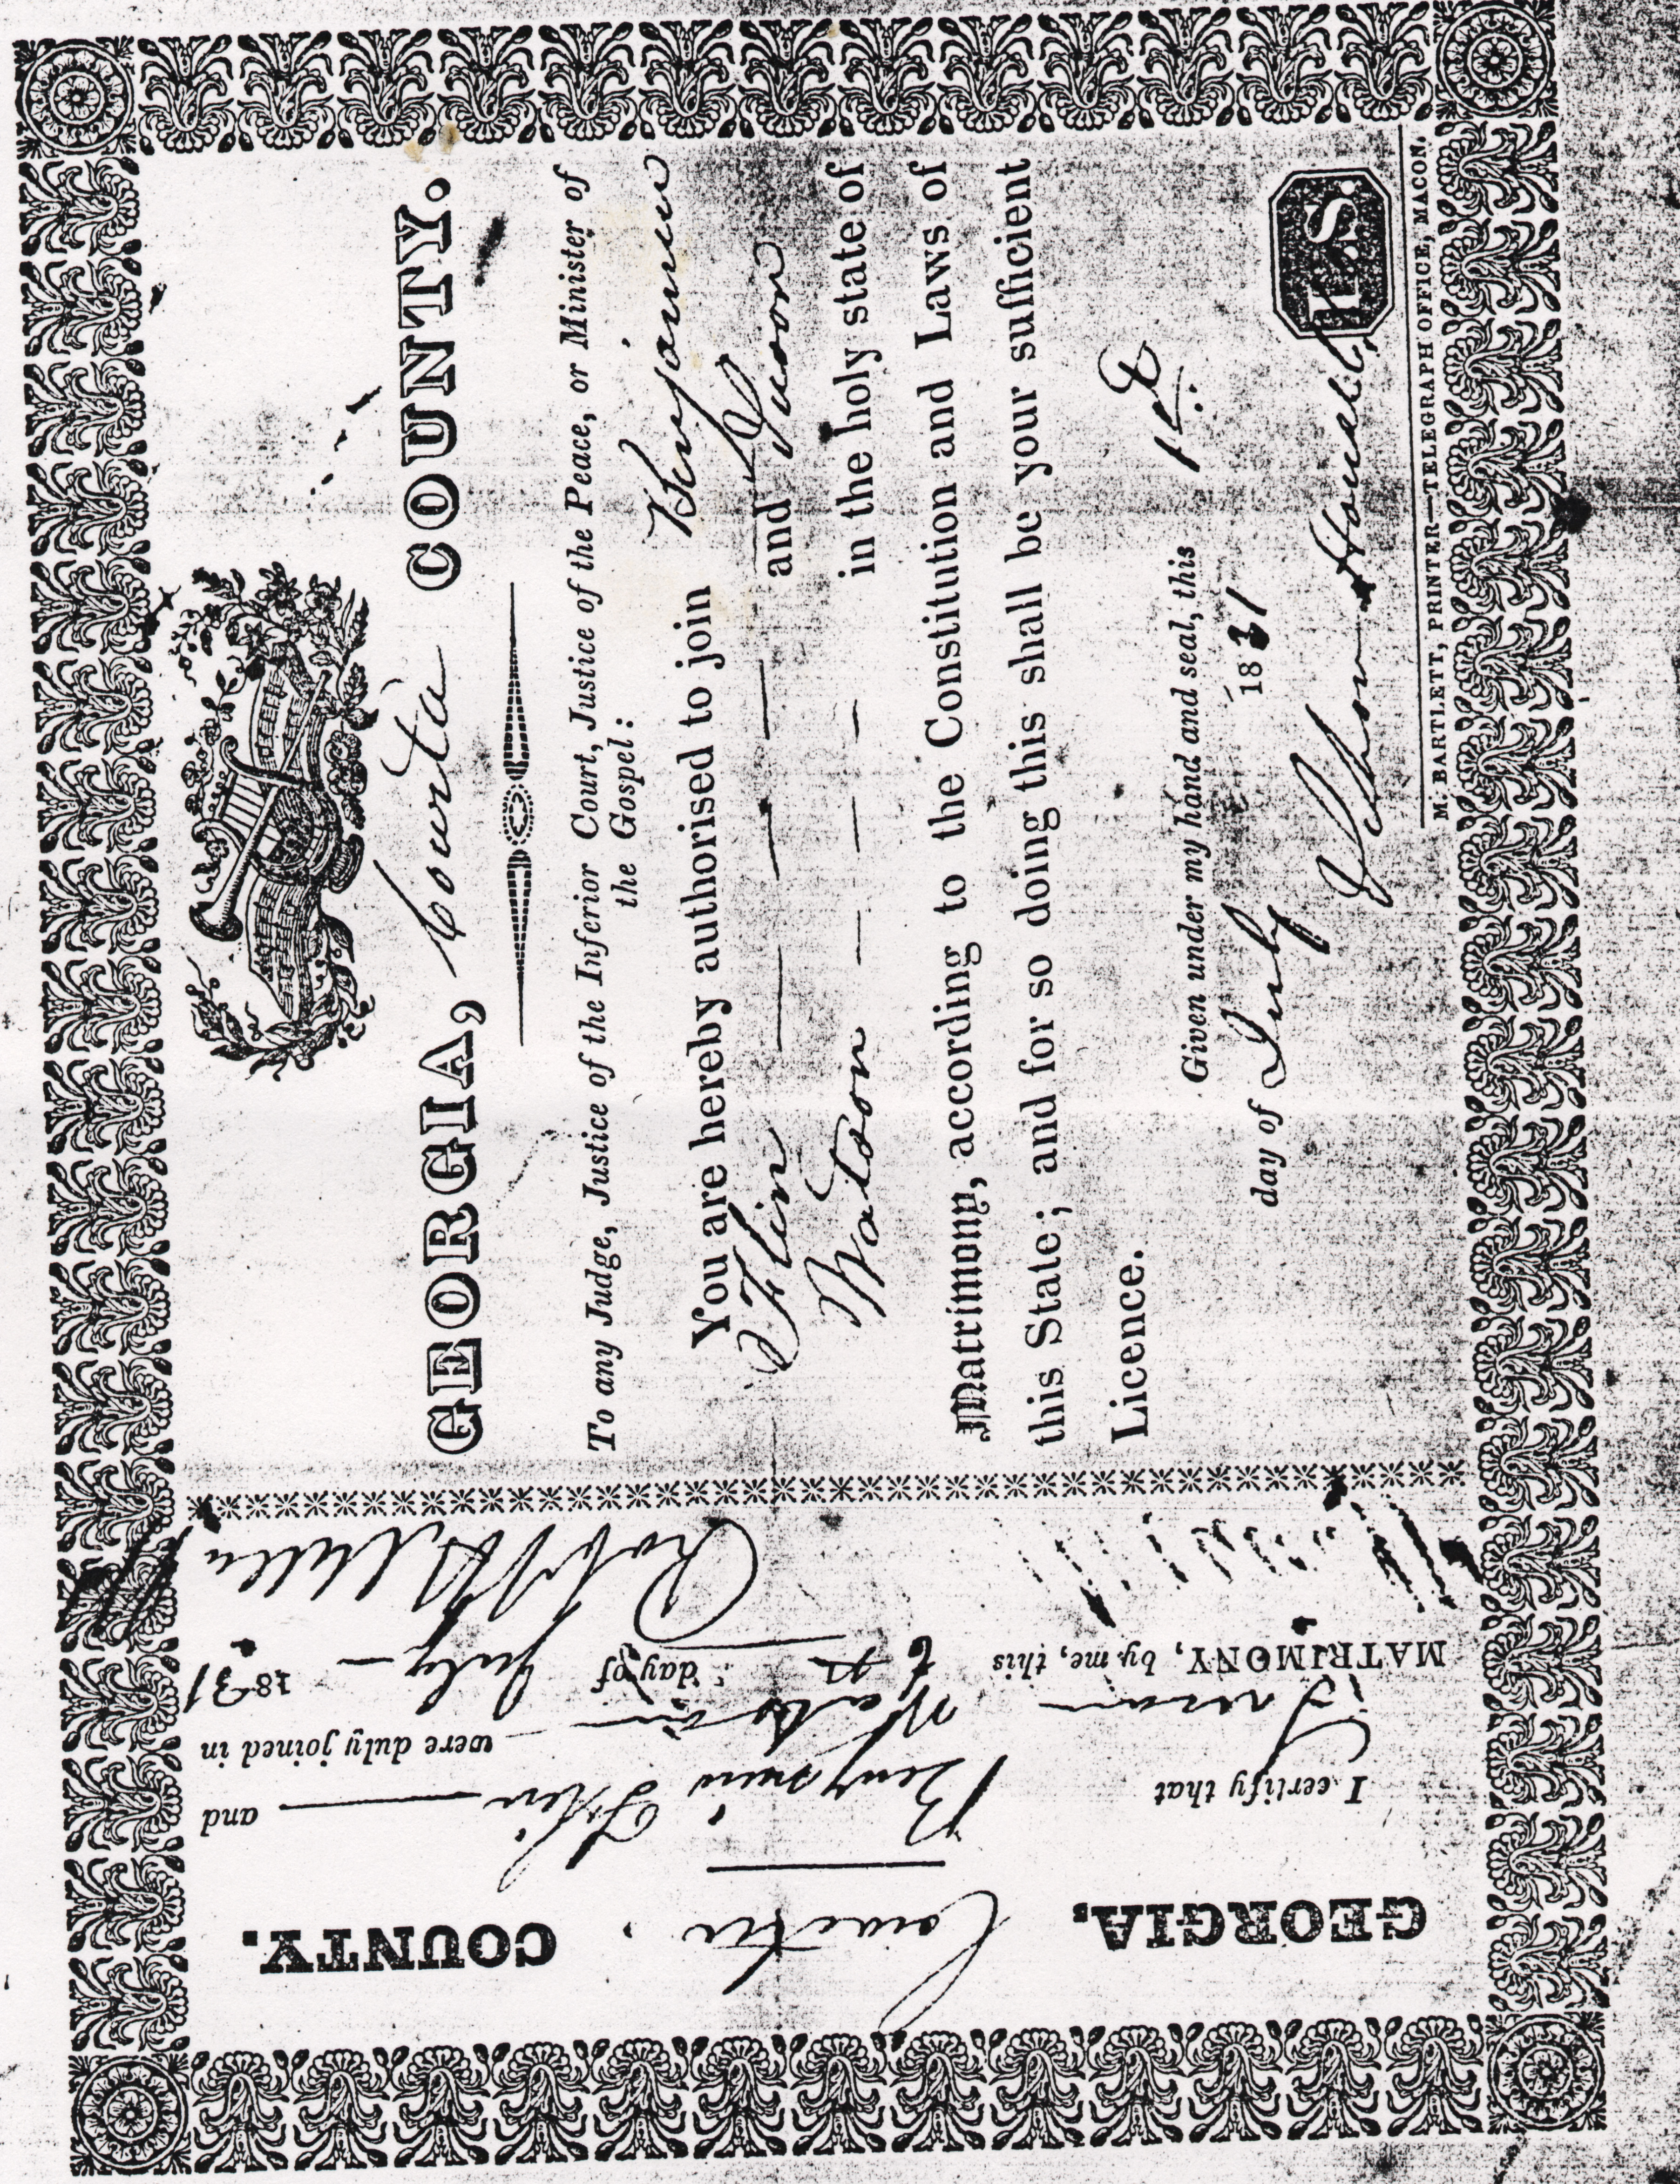 GEORGIA, Coweta COUNTY.
To any Judge, Justice of the Inferior Court, Justice of the Peace, or Minister of
the Gospel:
You are hereby authorised to join Benjamin
Flin and Susan
Watson in the holy state of
Matrimony, according to the Constitution and Laws of
this State; and for so doing this shall be your sufficient
Licence.
Given under my hand and seal, this 1st
day of July 1831
L.S.
M. BARTLETT, PRINTER—TELEGRAPH OFFICE, MACON.
GEORGIA, Coweta COUNTY.
I certify that Benjamin Flin and
Susan Watson were duly joined in
MATRIMONY, by me, this day of July 1831